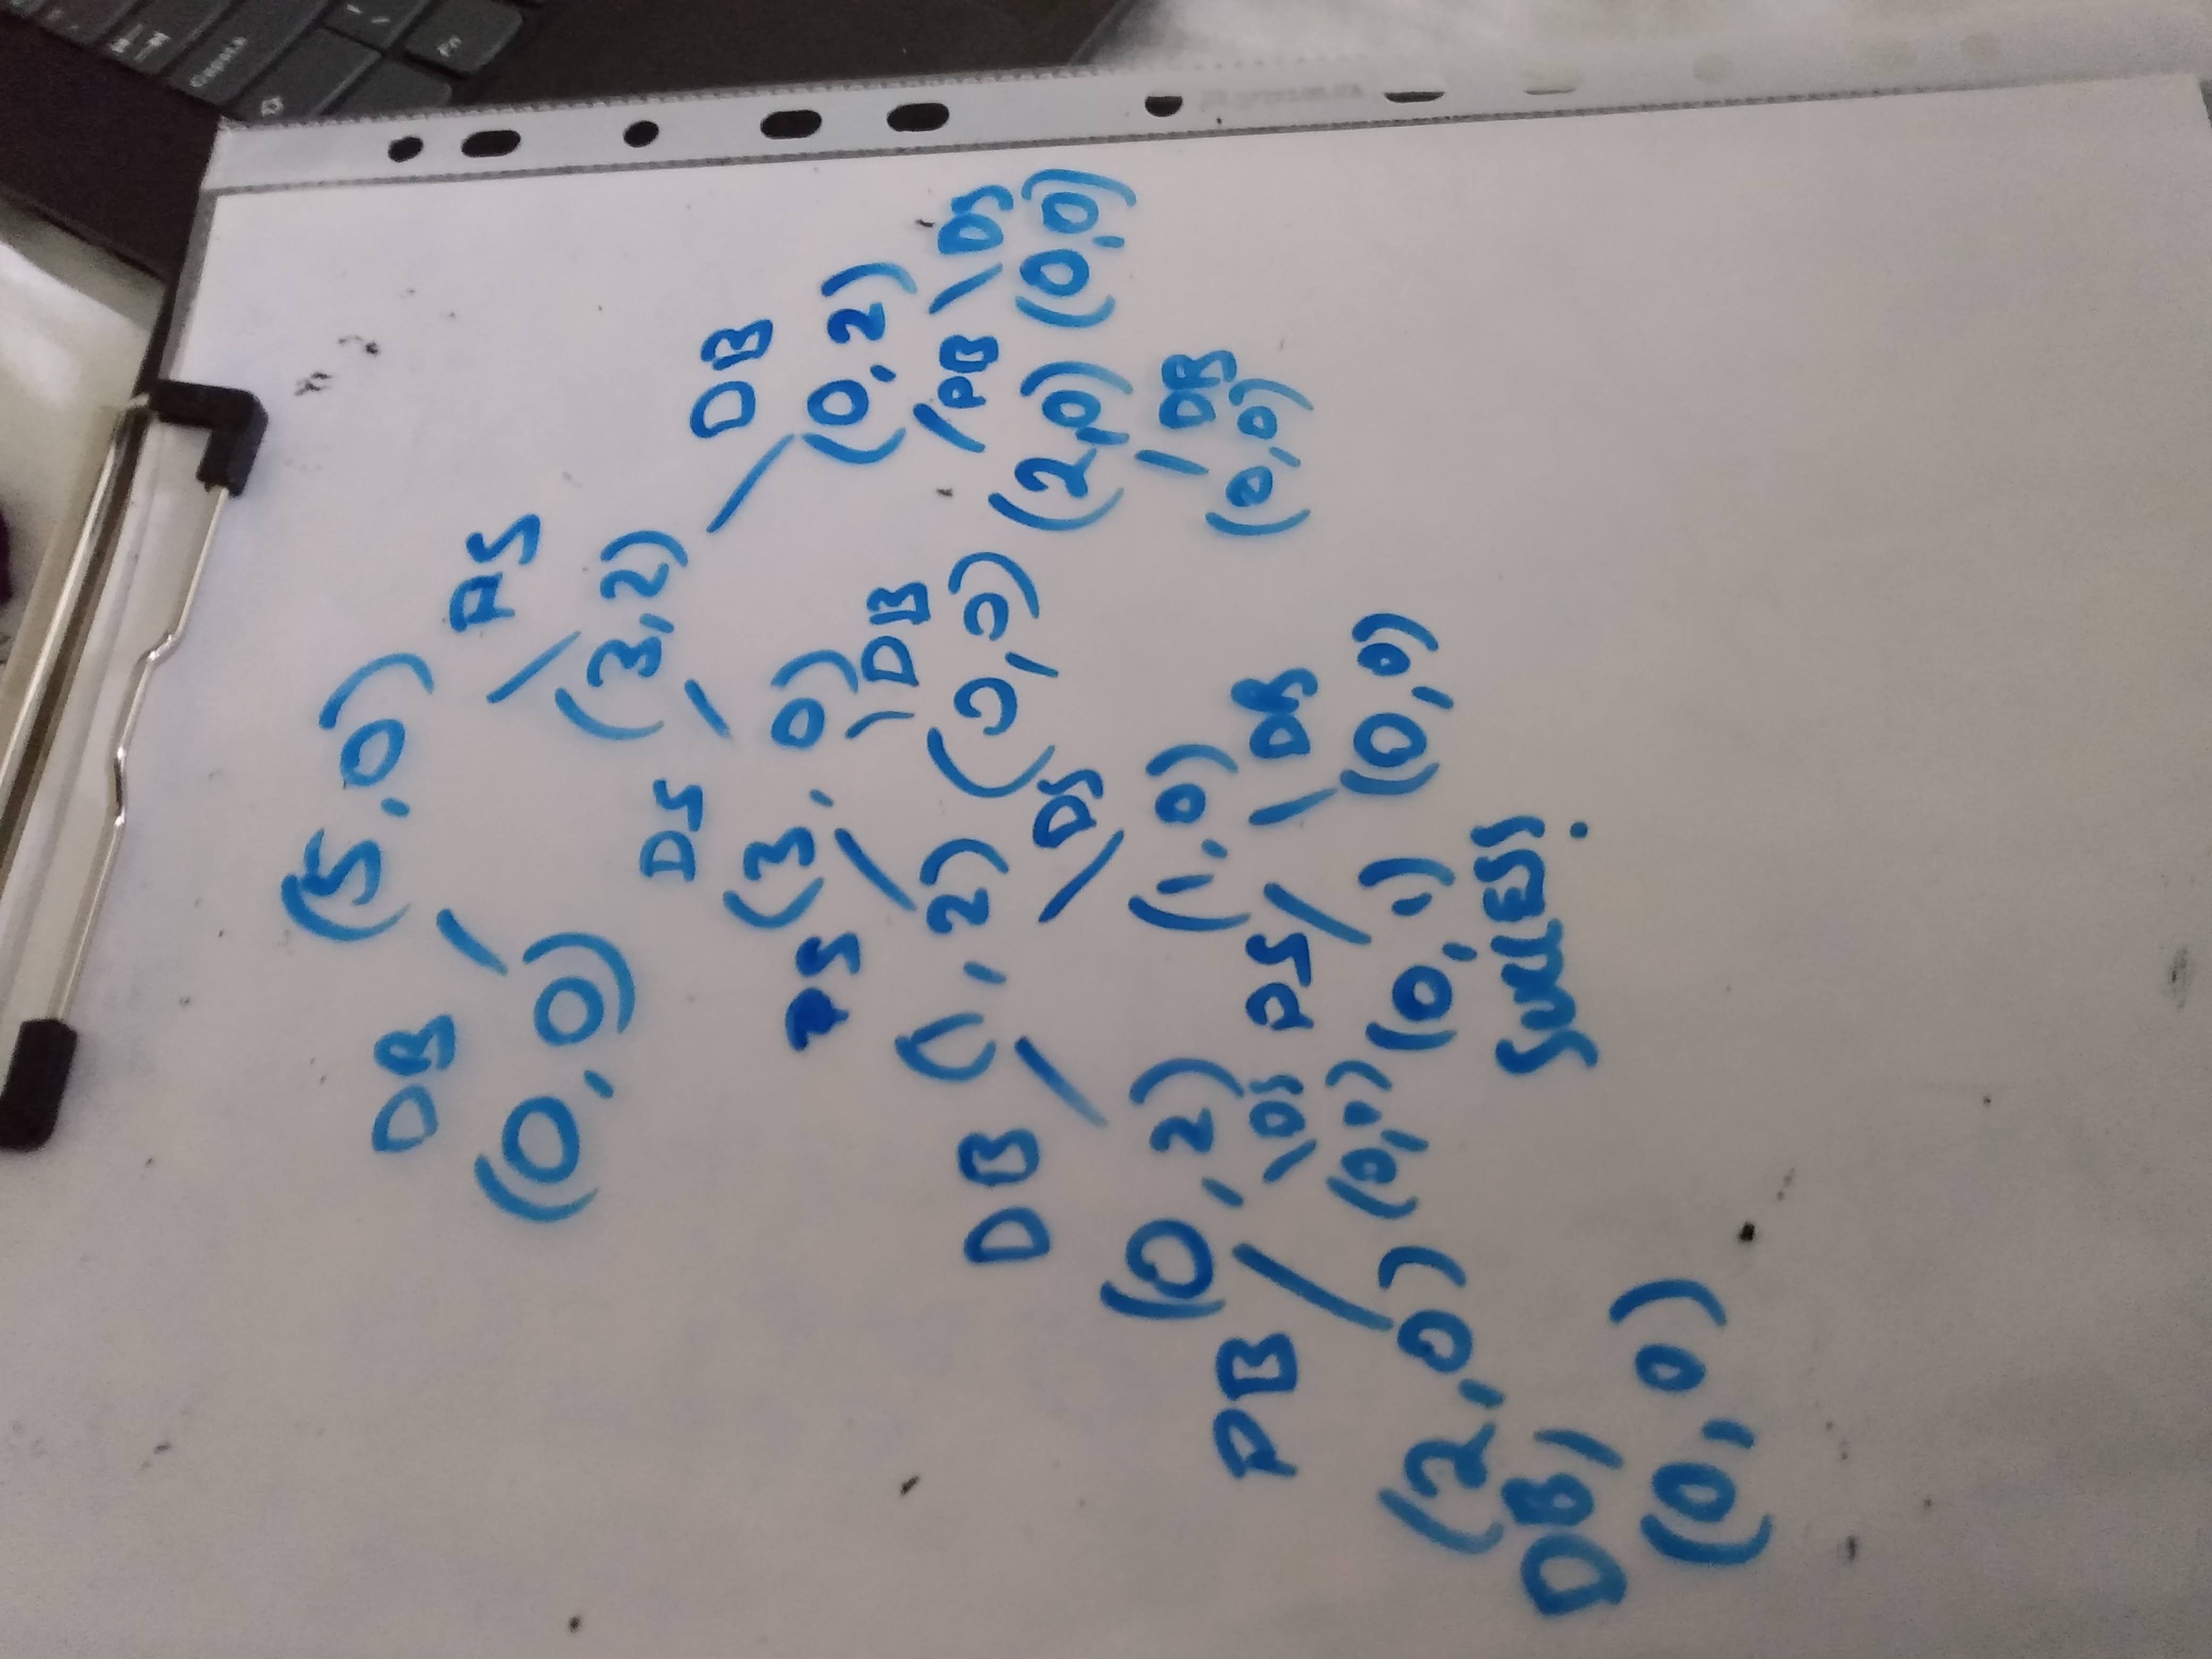 (5,0)
DB PS
(0,0) (3,2)
DS DB
(3,0) (0,2)
PS DB PB DS
(1,2) (0,0) (2,0) (0,0)
DB DS DB
(0,2) (1,0) (0,0)
PB DS PS DB
(2,0) (0,0) (0,1) (0,0)
DB
(0,0)